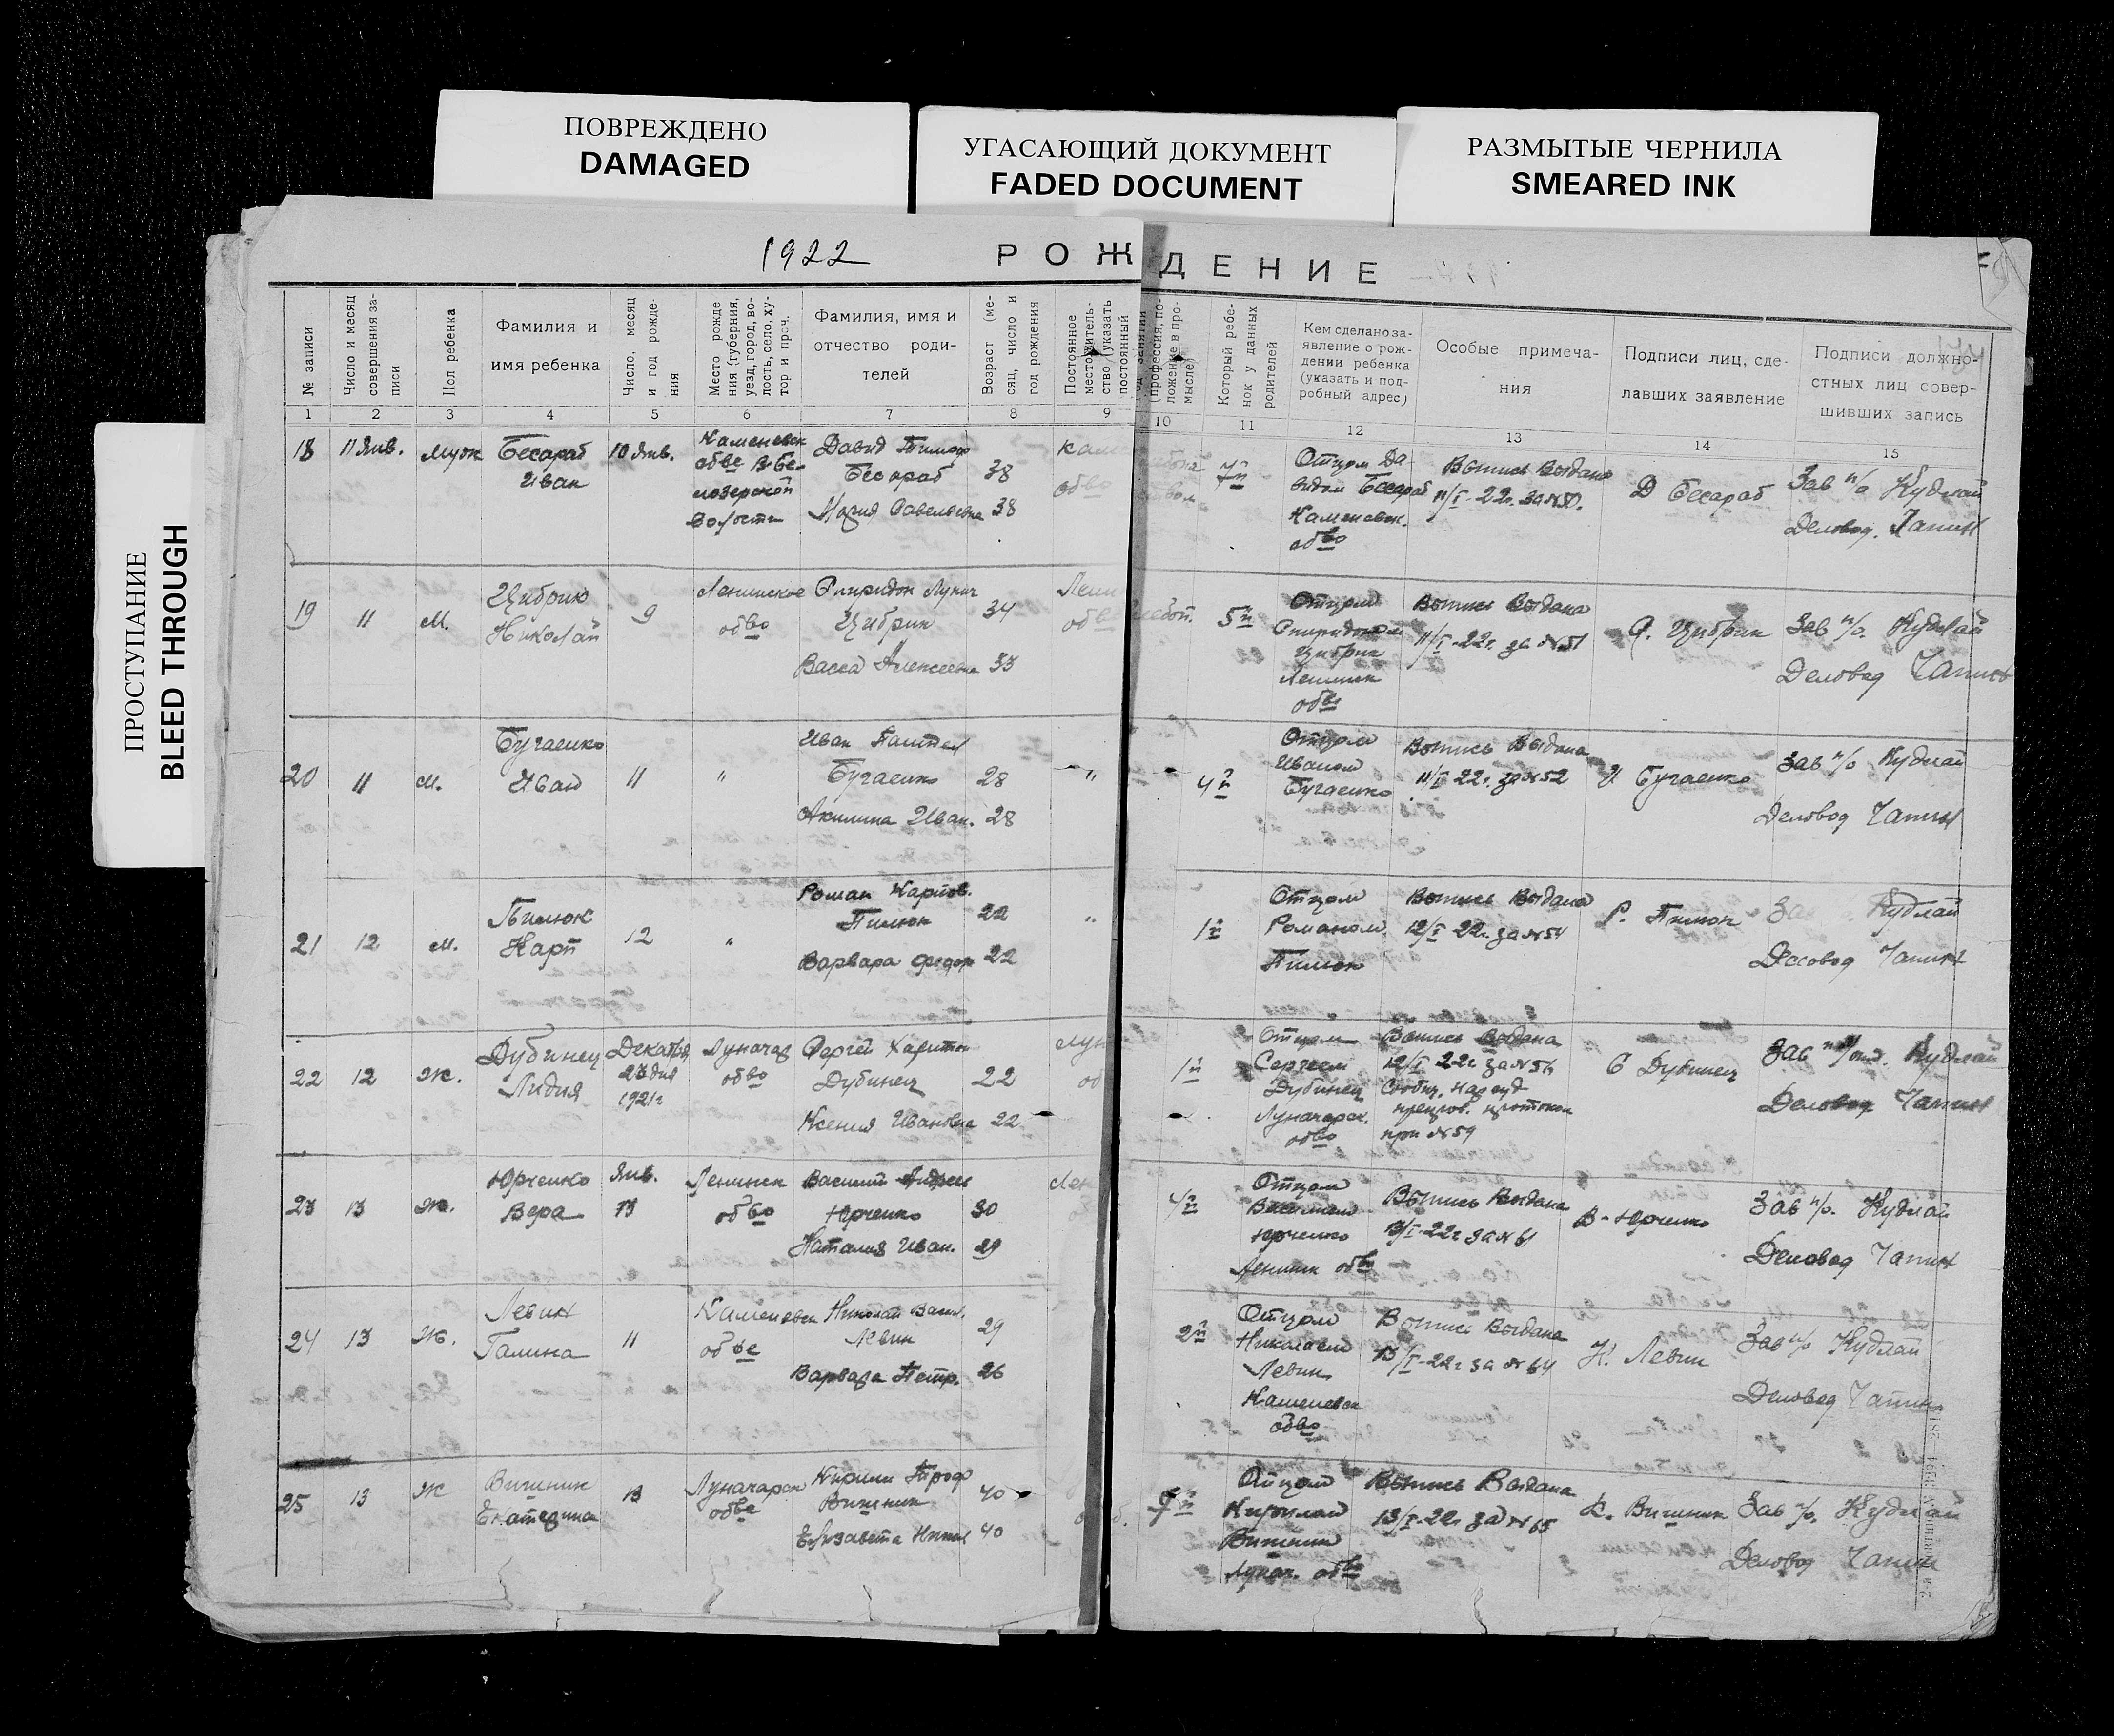 ПОВРЕЖДЕНО
DAMAGED
УГАСАЮЩИЙ ДОКУМЕНТ
FADED DOCUMENT
РАЗМЫТЫЕ ЧЕРНИЛА
SMEARED INK
ПРОСТУПАНИЕ
BLEED THROUGH
1922
РОЖДЕНИЕ
№ записи
Число и месяц
совершения за-
писи
Пол ребенка
Фамилия и
имя ребенка
Число, месяц
и год рожде-
ния
Место рожде
ния (губерния,
уезд, город, во-
лость, село, ху-
тор и проч.
Фамилия, имя и
отчество роди-
телей
Возраст (ме-
сяц, число и
год рождения
Постоянное
местожитель-
ство (указать
постоянный
(профессия, по-
ложение в про-
мысле)
Который ребе-
нок у данных
родителей
Кем сделано за-
явление о рож-
дении ребенка
(указать и под-
робный адрес)
Особые примеча-
ния
Подписи лиц, сде-
лавших заявление
Подписи должно-
стных лиц совер-
шивших запись
1 2 3 4 5 6 7 8 9 10 11 12 13 14 15
18
11 Янв.
муж
Бесараб
Иван
10 Янв.
Каменевск
обве
волости
Давид
Бесараб
38
Мария Савельевна 38
7й
Отцом Да-
видом Бесараб
Каменевск.
обво
Вопись Выдана
11/I-22г. за №50.
Д Бесараб
Зав п/о Кудлай
Деловод. Чапин
19
11
м.
Цибрик
Николай
9
Ленинское
обво
Спиридон Лукич
Цибрик
34
Васса Алексеевна 33
5й
Отцом
Спиридоном
Цибрик
Ленинск
обво
Вопись Выдана
11/I-22г. за №51
С. Цибрик
Зав п/о. Кудлай
Деловод Чапин
20
11
м.
Бугаенко
Иван
11
"
Иван
Бугаенко
28
Акилина Иван. 28
"
4й
Отцом
Иваном
Бугаенко
Вопись Выдана
11/I 22г. за №52
И Бугаенко
Зав п/о Кудлай
Деловод Чапин
21
12
м.
Пилюк
Карп
12
"
Роман Карпов.
Пилюк
22
Варвара Федор 22
"
1й
Отцом
Романом
Пилюк
Вопись Выдана
12/I 22г. за №54
Р. Пилюк
Зав Кудлай
Деловод Чапин
22
12
ж.
Дубинец
Лидия
Декабря
23 дня
1921г
Луначар
обво
Сергей Харитон
Дубинец
22
Ксения Ивановна 22
1й
Отцом
Сергеем
Дубинец
Луначарск.
обво
Вопись Выдана
12/I 22г за №56
протокол
при №59
С Дубинец
Зав Кудлай
Деловод Чапин
23
13
ж.
Юрченко
Вера
Янв.
13
Ленинск
обво
Василий Андреев
Юрченко
30
Наталия Иван. 29
4й
Отцом
Василием
Юрченко
Ленинск обво
Вопись Выдана
13/I-22г за №61
В. Юрченко
Зав п/о. Кудлай
Деловод Чапин
24
13
ж.
Левин
Галина
11
Каменевск
обве
Николай Васил.
Левин
29
Варвара Петр. 26
2й
Отцом
Николаем
Левин
Каменевск
обво
Вопись Выдана
13/I-22г за №64
Н. Левин
Зав п/о Кудлай
Деловод Чапин
25
13
ж
Вишник
Екатерина
13
Луначарск
обве
Кирилл Троф
Вишник
40
Елизавета Никол 40
Отцом
Кирилом
Вишник
Лунач. обво
Вопись Выдана
13/I-22г за №65
К. Вишник
Зав п/о. Кудлай
Деловод Чапин